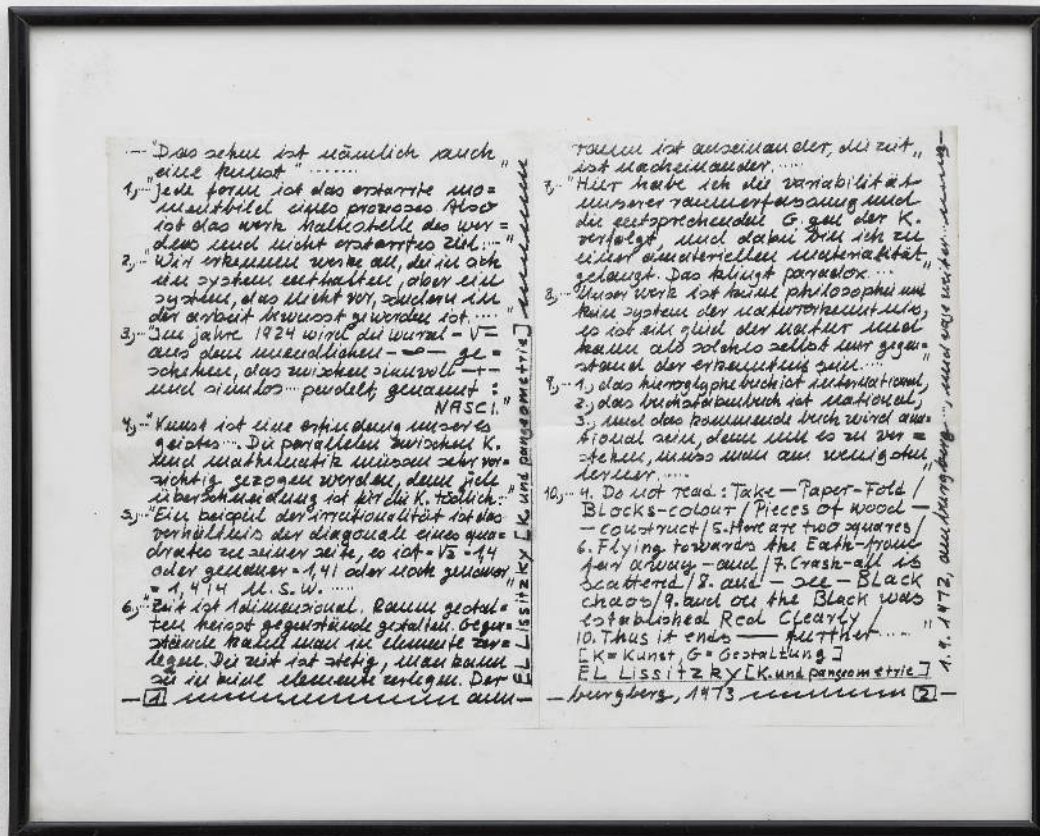 .... "Das sehen ist nämlich auch
eine kunst" .......
1,.. "Jede form ist das erstarrte mo=
mentbild eines prozesses. Also
ist das werk haltestelle des wer=
dens und nicht erstarrtes ziel...."
2,.. "Wir erkennen werke an, die in sich
ein system enthalten, aber ein
system, das nicht vor, sondern in
der arbeit bewusst geworden ist....."
3,.. "Im jahre 1924 wird die wurzel - √ =
aus dem unendlichen - ∞ - ge=
schehen, das zwischen sinnvoll -+-
und sinnlos - pendelt, genannt :
NASCI."
4,.. "Kunst ist eine erfindung unseres
geistes.... Die parallelen zwischen K.
und mathematik müssen sehr vor=
sichtig gezogen werden, denn jede
überschneidung ist für die K. tödlich.."
5,.. "Ein beispiel der irrationalität ist das
verhältnis der diagonale eines qua=
drates zu seiner seite, es ist = √2 = 1,4
oder genauer = 1,41 oder noch genauer
= 1,414 U.S.W. ......"
6,.. "Zeit ist 1dimensional. Raum gestal=
ten heisst gegenstände gestalten. Gegen=
stände kann man in elemente zer=
legen. Die zeit ist stetig, man kann
sie in keine elemente zerlegen. Der
1 am
EL LissitzKy [K. und pangeometrie]
raum ist auseinander, die zeit
ist nacheinander....."
7,.. "Hier habe ich die variabilität
unserer raumerfassung und
die entsprechenden G. gen der K.
verfolgt, und dabei bin ich zu
einer amateriellen materialität
gelangt. Das klingt paradox...."
8,.. "Unser werk ist keine philosophie und
kein system der naturerkenntnis,
es ist ein glied der natur und
kann als solches selbst nur gegen=
stand der erkenntnis sein...."
9,.. 1,, das hieroglyphebuch ist international,
2,, das buchstabenbuch ist national,
3,, und das kommende buch wird ana=
tional sein, denn um es zu ver=
stehen, muss man am wenigsten
lernen....."
10,.. 4. Do not read : Take — Paper-Fold /
Blocks-colour / Pieces of wood —
— construct / 5. Here are two squares /
6. Flying towards the Eath-from
far away — and / 7. Crash-all is
scattered / 8. and — see — Black
chaos / 9. and on the Black was
established Red Clearly /
10. Thus it ends — further .....
[K = Kunst, G = Gestaltung]
EL LissitzKy [K. und pangeometrie]
burgberg, 1973 2
1. 9. 1972, am burgberg..., und weiter